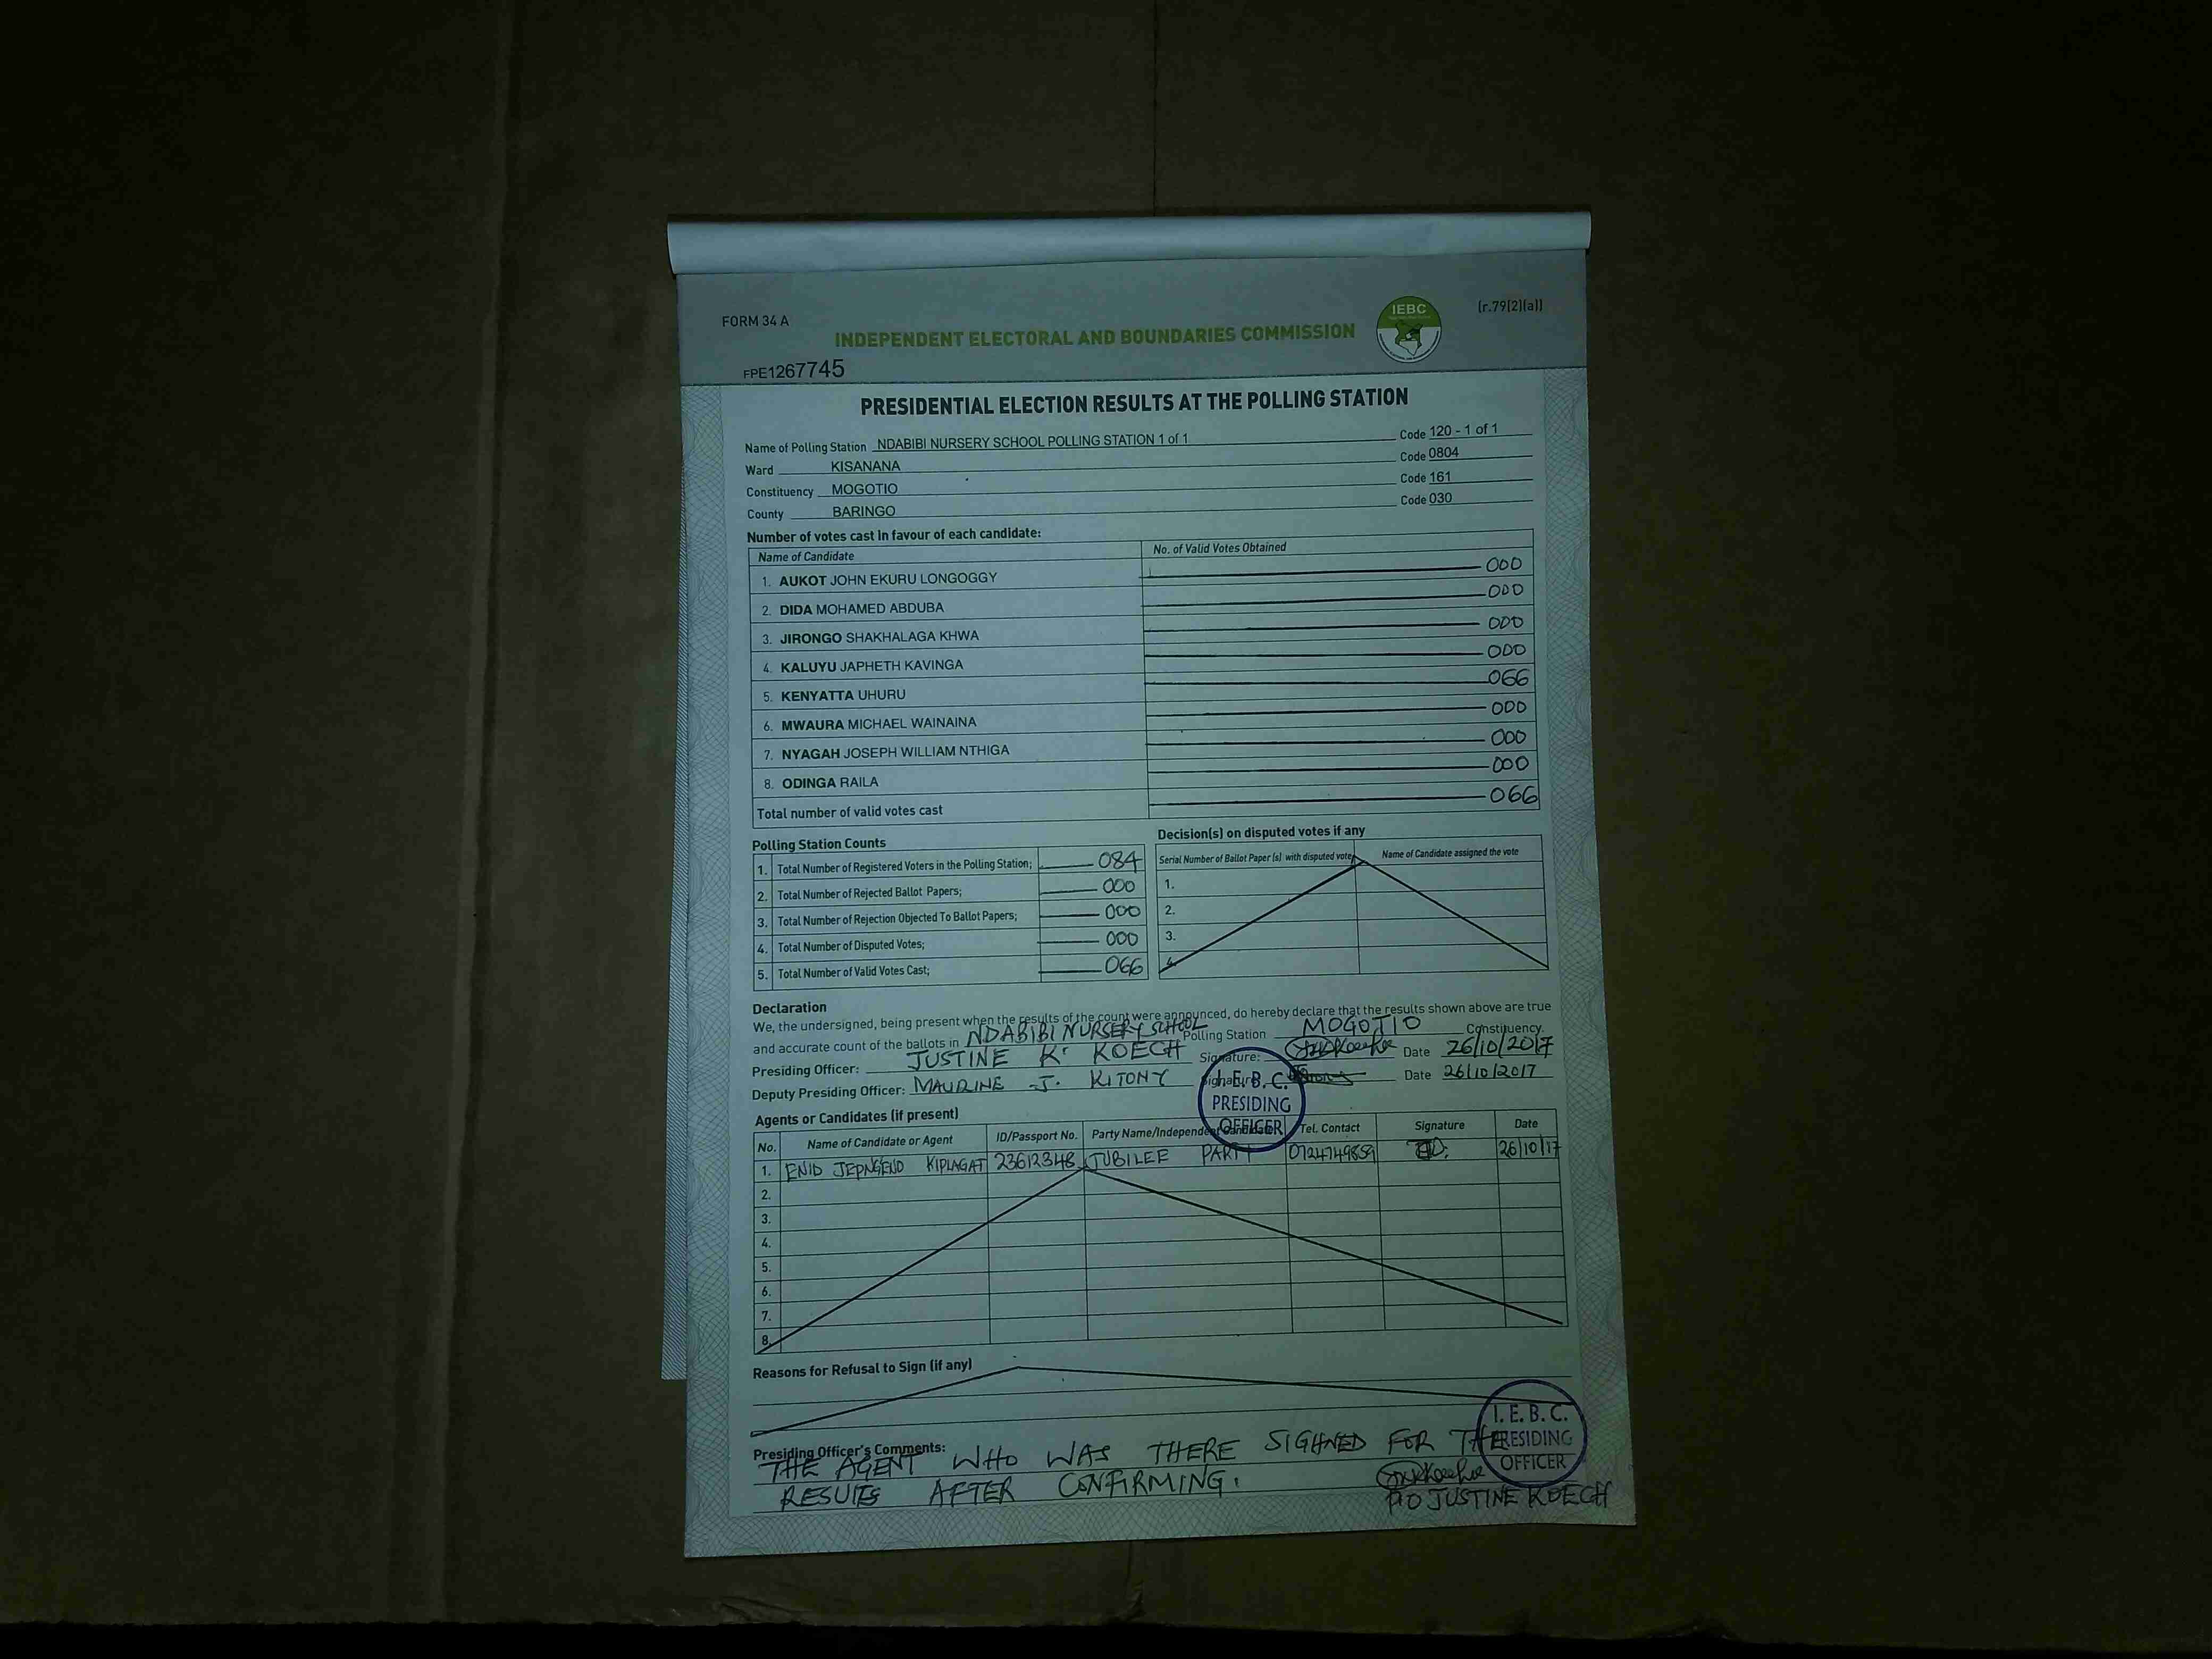 FORM 34 A
IEBC
(r.79(2)(a))
INDEPENDENT ELECTORAL AND BOUNDARIES COMMISSION
FPE1267745
PRESIDENTIAL ELECTION RESULTS AT THE POLLING STATION
Name of Polling Station NDABIBI NURSERY SCHOOL POLLING STATION 1 of 1 Code 120 - 1 of 1
Ward KISANANA Code 0804
Constituency MOGOTIO Code 161
County BARINGO Code 030
Number of votes cast in favour of each candidate:
Name of Candidate No. of Valid Votes Obtained
1. AUKOT JOHN EKURU LONGOGGY 000
2. DIDA MOHAMED ABDUBA 000
3. JIRONGO SHAKHALAGA KHWA 000
4. KALUYU JAPHETH KAVINGA 000
5. KENYATTA UHURU 066
6. MWAURA MICHAEL WAINAINA 000
7. NYAGAH JOSEPH WILLIAM NTHIGA 000
8. ODINGA RAILA 000
Total number of valid votes cast 066
Polling Station Counts
1. Total Number of Registered Voters in the Polling Station; 084
2. Total Number of Rejected Ballot Papers; 000
3. Total Number of Rejection Objected To Ballot Papers; 000
4. Total Number of Disputed Votes; 000
5. Total Number of Valid Votes Cast; 066
Decision(s) on disputed votes if any
Serial Number of Ballot Paper (s) with disputed vote Name of Candidate assigned the vote
1.
2.
3.
4.
Declaration
We, the undersigned, being present when the results of the count were announced, do hereby declare that the results shown above are true
and accurate count of the ballots in NDABIBI NURSERY SCHOOL Polling Station MOGOTIO Constituency.
Presiding Officer: JUSTINE K. KOECH Signature: Date 26/10/2017
Deputy Presiding Officer: MAURINE J. KITONY Signature: Date 26/10/2017
I.E.B.C.
PRESIDING
OFFICER
Agents or Candidates (if present)
No. Name of Candidate or Agent ID/Passport No. Party Name/Independent Candidate Tel. Contact Signature Date
1. ENID JEPNGENO KIPLAGAT 23612348 JUBILEE PARTY 0724749859 26/10/17
2.
3.
4.
5.
6.
7.
8.
Reasons for Refusal to Sign (if any)
Presiding Officer's Comments: WHO WAS THERE SIGHNED FOR THE
THE AGENT
RESULTS AFTER CONFIRMING.
I.E.B.C.
PRESIDING
OFFICER
P.O JUSTINE KOECH